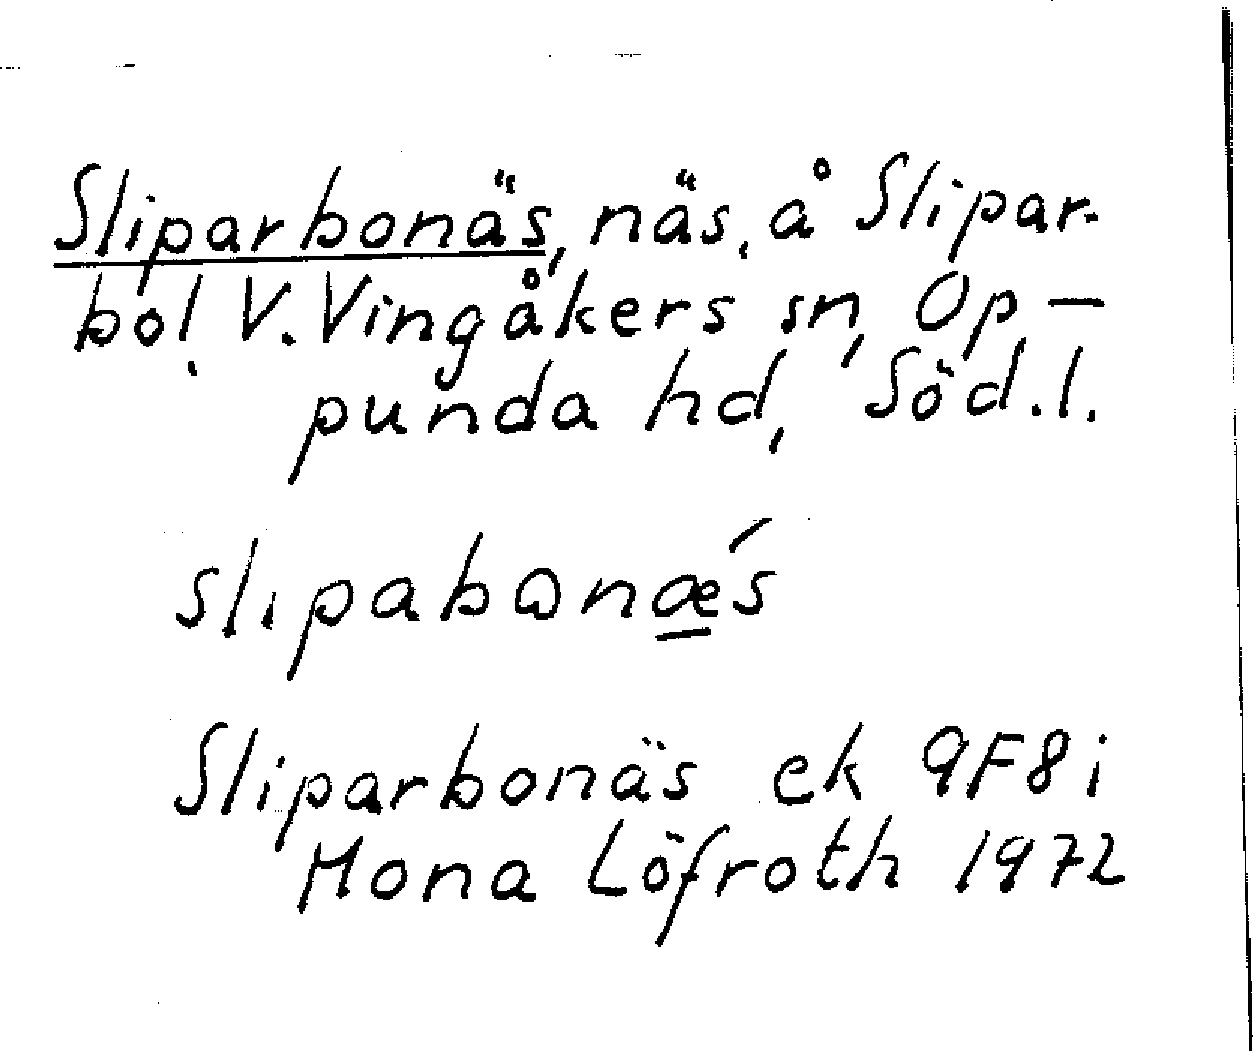 Sliparbonäs, näs, å Slipar-
bol, V. Vingåkers sn, Op-
punda hd, Söd.l.
slıpabɷnǽs
Sliparbonäs ek 9F8i
Mona Löfroth 1972